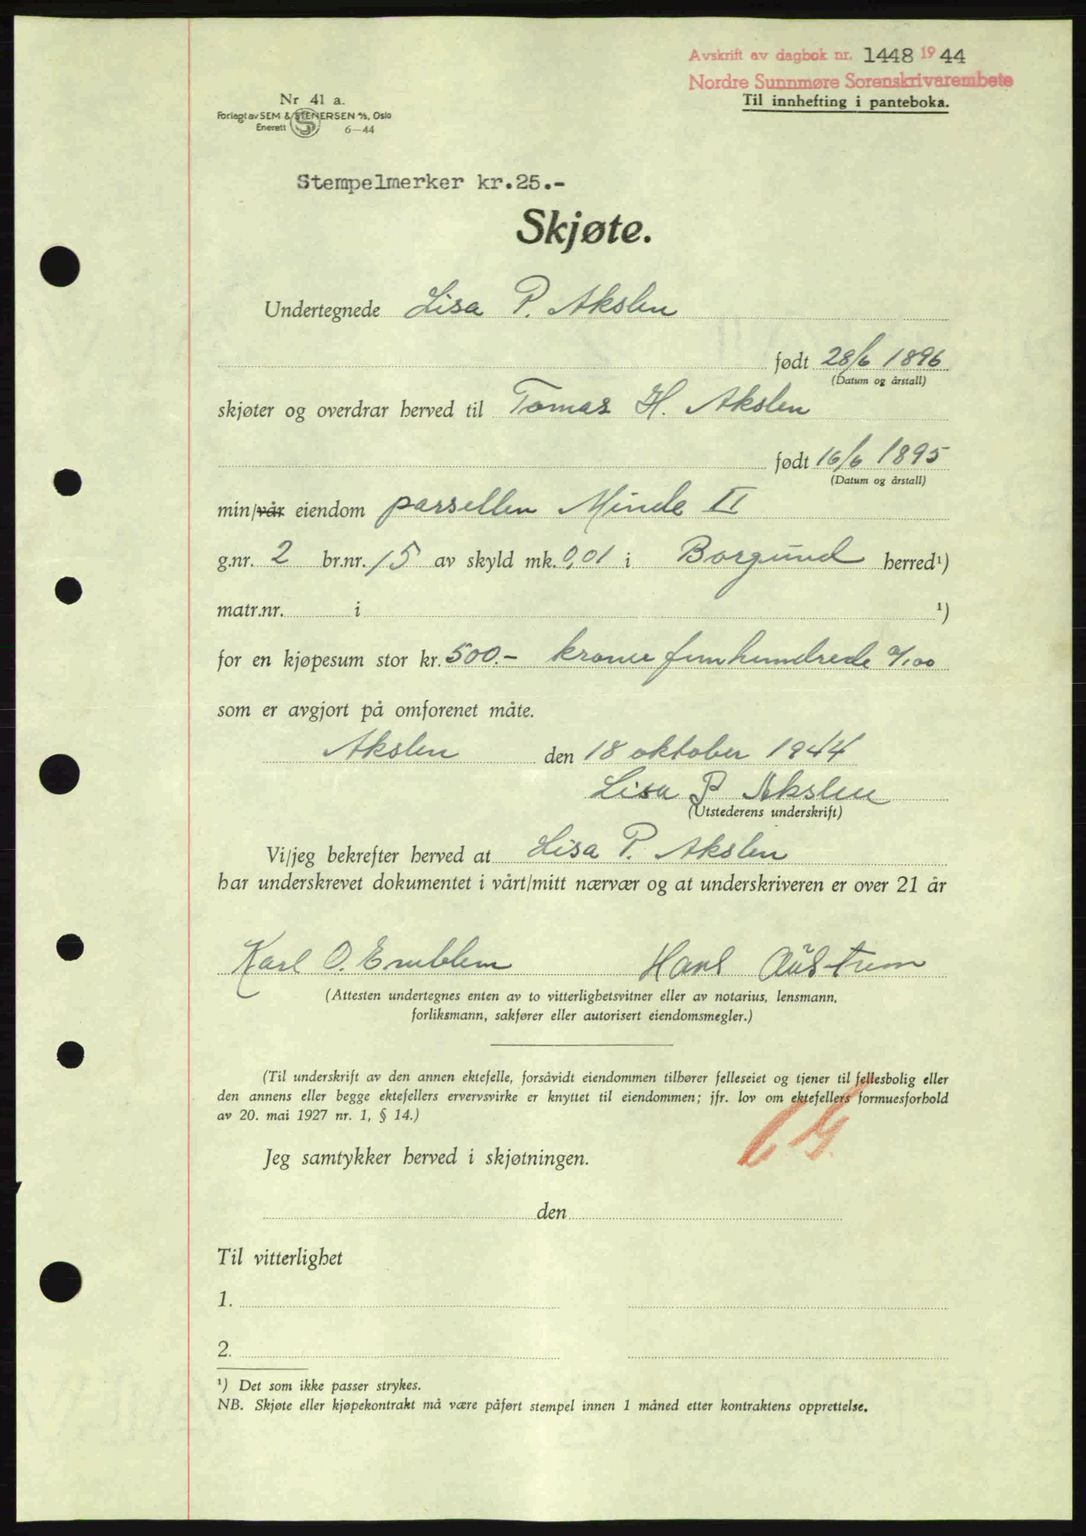 Avskrift av dagbok nr. 1448 1944
Nordre Sunnmøre Sorenskrivarembete
Til innhefting i panteboka.
Nr 41 a.
Forlagt av SEM & STENERSEN A/S, Oslo
Enerett S 6—44
Stempelmerker kr.25.-
Skjøte.
Undertegnede Lisa P. Akslen
født 28/6 1896
(Datum og årstall)
skjøter og overdrar herved til Tomas H. Akslen
født 16/6 1895
(Datum og årstall)
min/vår eiendom parsellen Minde II
g.nr. 2 br.nr. 15 av skyld mk. 0,01 i Borgund herred¹)
matr.nr. i ¹)
for en kjøpesum stor kr. 500.- kroner femhundrede 0/100
som er avgjort på omforenet måte.
Akslen den 18 oktober 1944
Lisa P Akslen
(Utstederens underskrift)
Vi/jeg bekrefter herved at Lisa P. Akslen
har underskrevet dokumentet i vårt/mitt nærvær og at underskriveren er over 21 år
Karl O. Emblem Hans
(Attesten undertegnes enten av to vitterlighetsvitner eller av notarius, lensmann,
forliksmann, sakfører eller autorisert eiendomsmegler.)
(Til underskrift av den annen ektefelle, forsåvidt eiendommen tilhører felleseiet og tjener til fellesbolig eller
den annens eller begge ektefellers ervervsvirke er knyttet til eiendommen; jfr. lov om ektefellers formuesforhold
av 20. mai 1927 nr. 1, § 14.)
Jeg samtykker herved i skjøtningen.
den
Til vitterlighet
1.
2.
¹) Det som ikke passer strykes.
NB. Skjøte eller kjøpekontrakt må være påført stempel innen 1 måned etter kontraktens opprettelse.